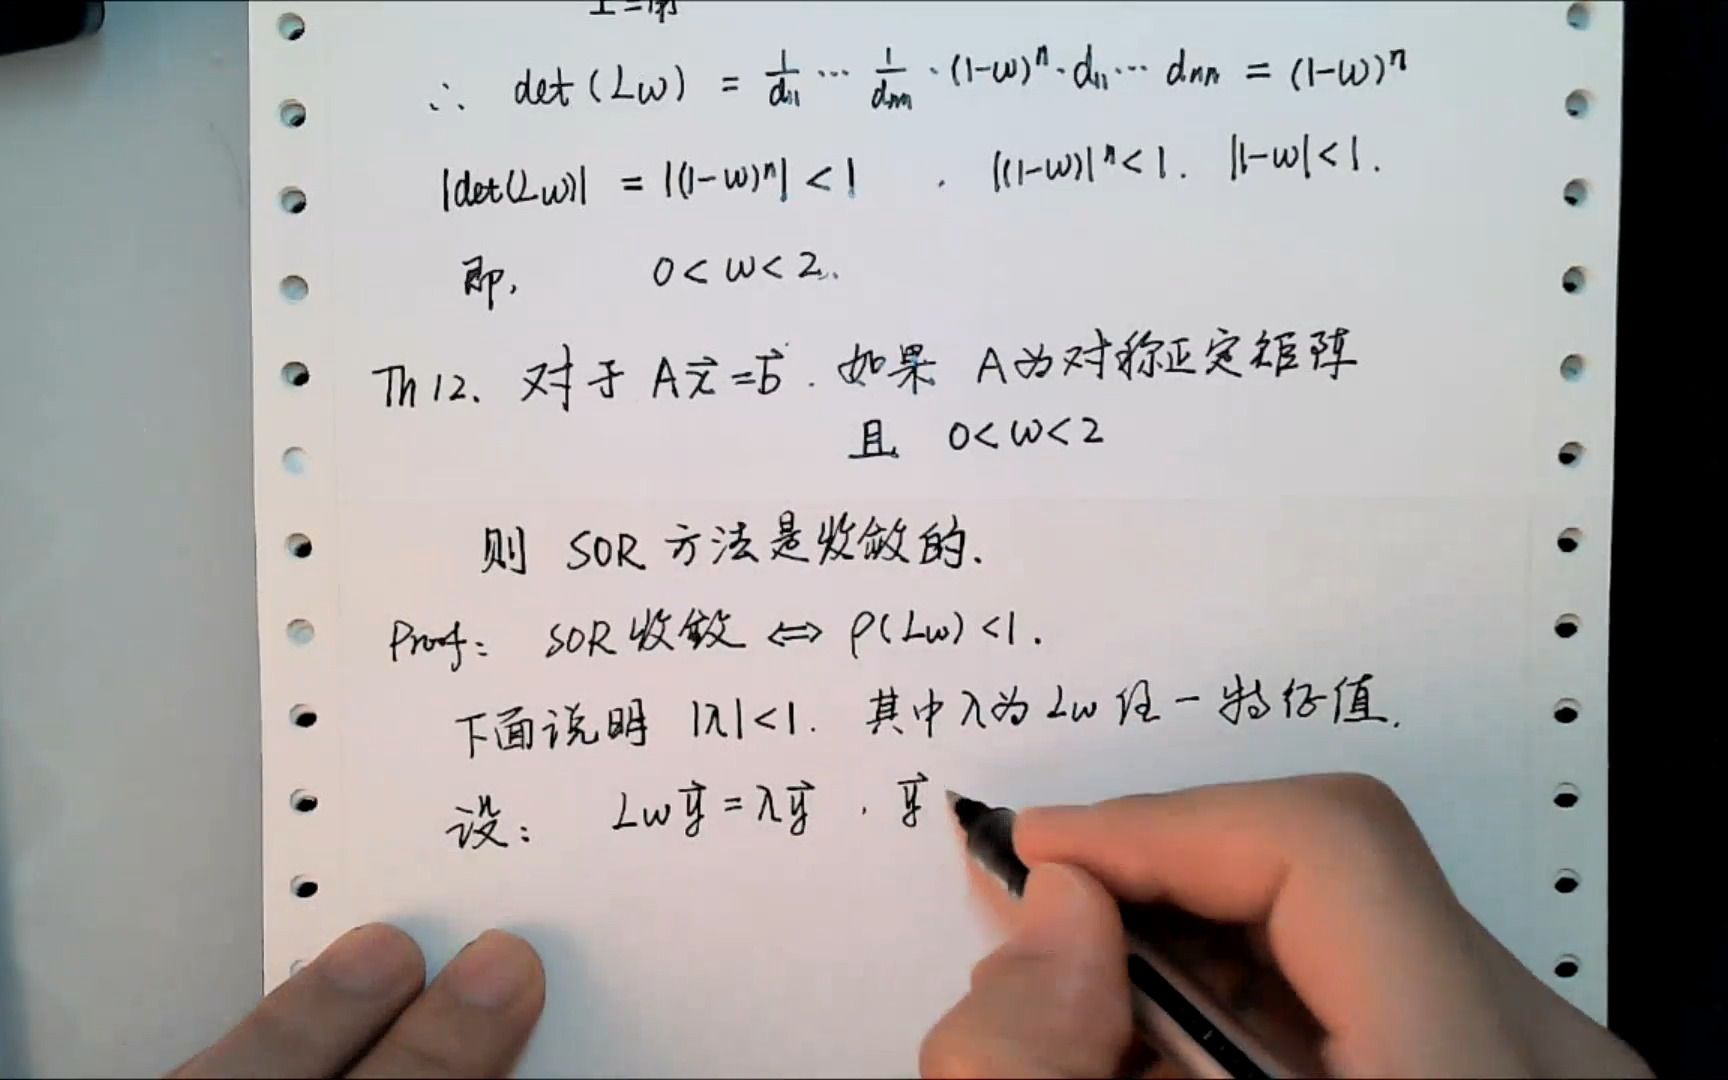 ∴ det (Lω) = 1/d₁₁ ⋯ 1/dₙₙ · (1-ω)ⁿ · d₁₁ ⋯ dₙₙ = (1-ω)ⁿ
|det(Lω)| = |(1-ω)ⁿ| < 1 . |(1-ω)|ⁿ < 1. |1-ω| < 1.
即, 0 < ω < 2.
Th 12. 对于 Ax⃗ = b⃗. 如果 A为对称正定矩阵
且 0 < ω < 2
则 SOR 方法是收敛的.
Proof: SOR 收敛 ⇔ ρ(Lω) < 1.
下面说明 |λ| < 1. 其中 λ为 Lω 任一特征值.
设: Lωy⃗ = λy⃗ . y⃗